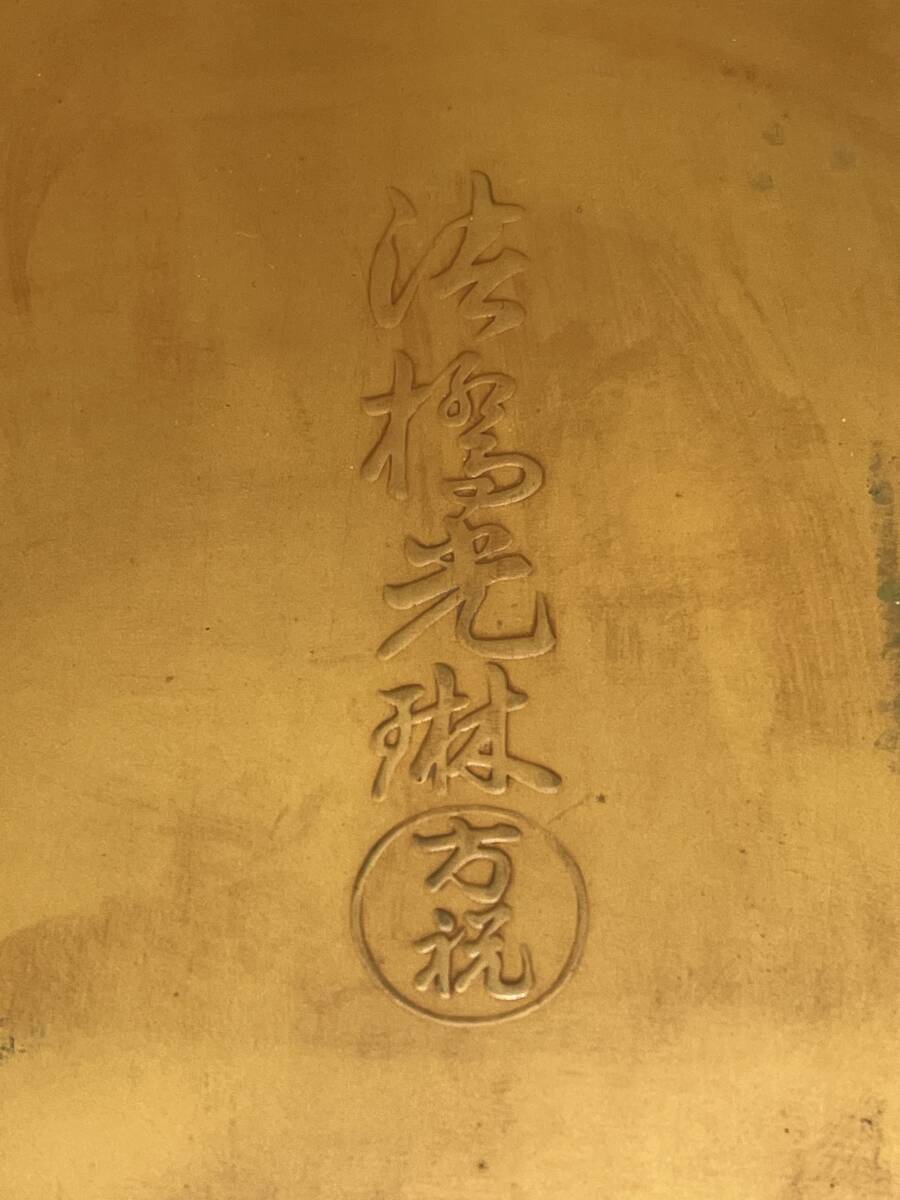 法橋光琳
方祝